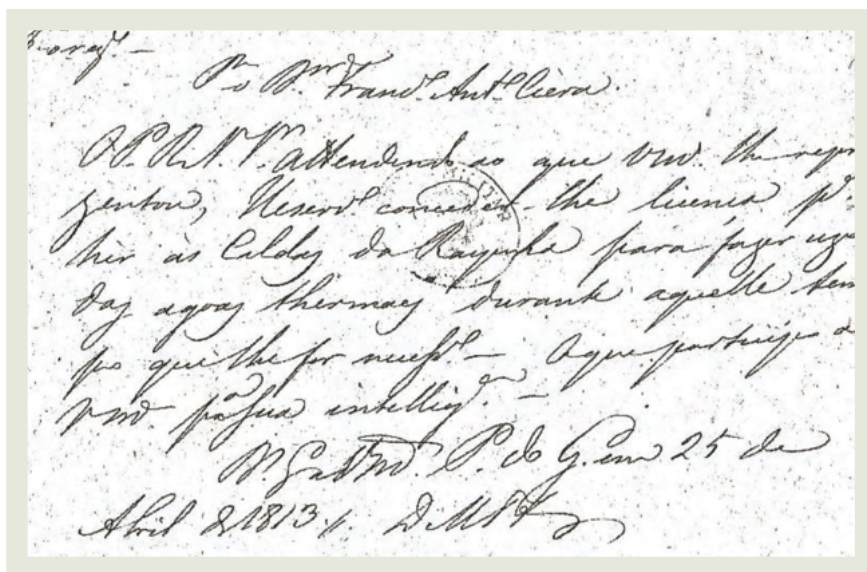 P.ª o D.r Franc.º Ant.º Ciera.
O P. R. N. S.r attendendo ao que vm.ce lhe repre
zentou, Reserv.º conceder-lhe licença p.ª
hir ás Caldas da Raynha para fazer uzo
das agoas thermaes durante aquelle tem
po que lhe for necess.º — O que participo a
vm.ce p.ª sua intellig.ª —
D.s G.de a Vm.ce P. do G. em 25 de
Abril de 1813 //. D. M. P. F.